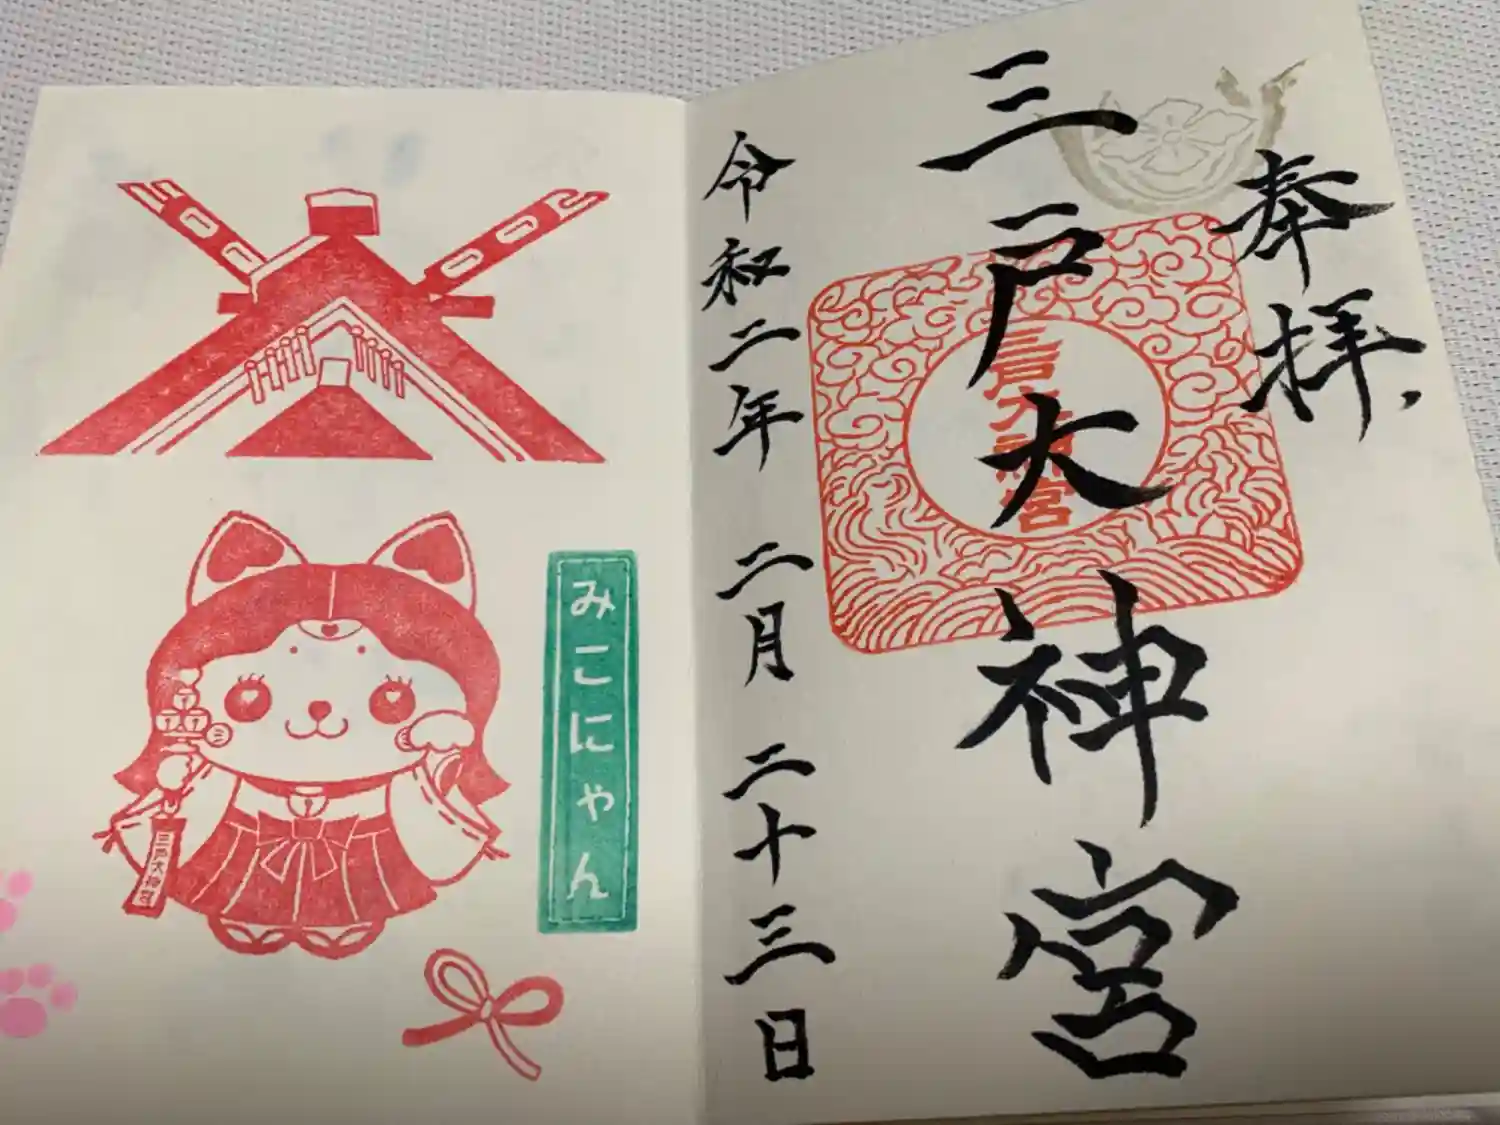 奉拝
三戸大神宮
三戸大神宮
令和二年 二月 二十三日
みこにゃん
三戸大神宮